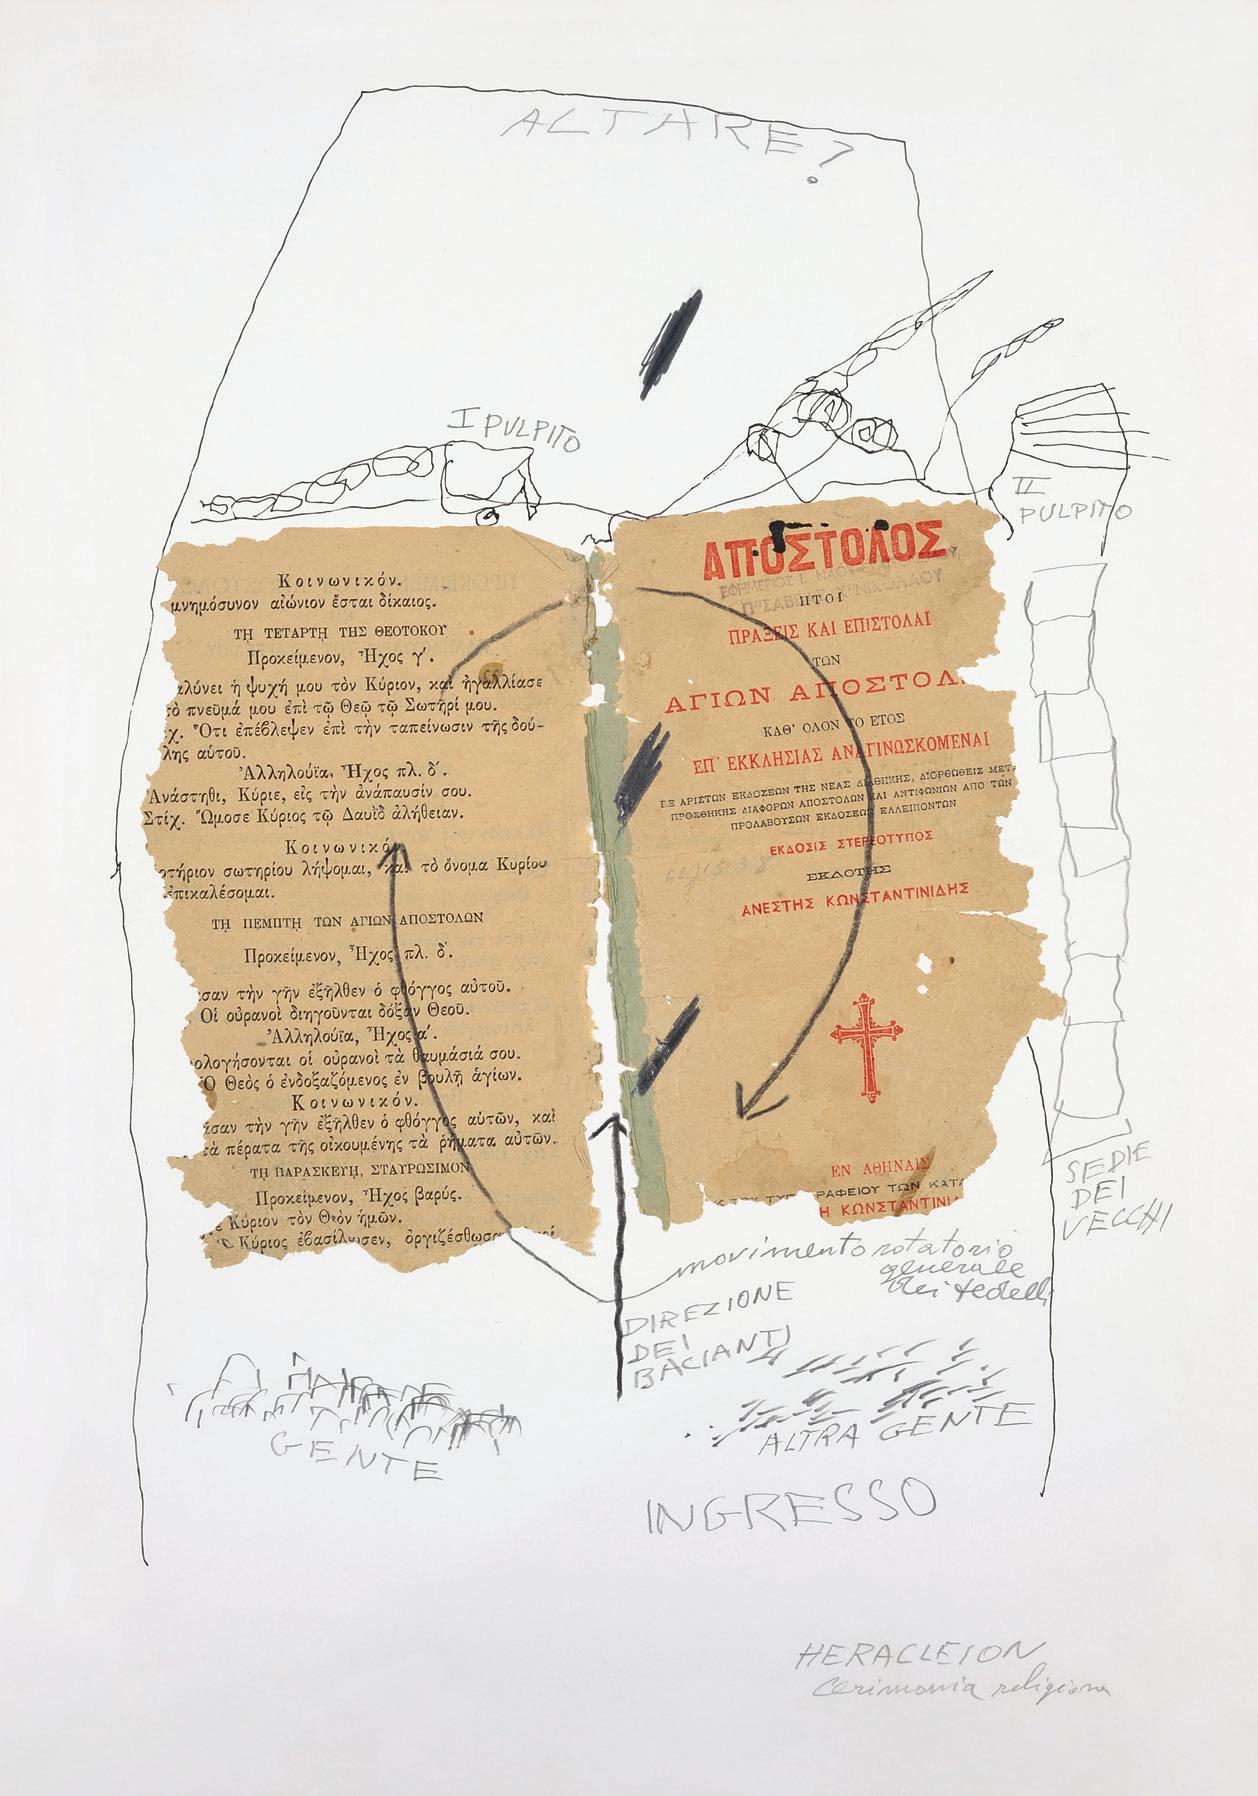 ALTARE?
I PULPITO
II
PULPITO
Κοινωνικόν.
μνημόσυνον αἰώνιον ἔσται δίκαιος.
ΤΗ ΤΕΤΑΡΤΗ ΤΗΣ ΘΕΟΤΟΚΟΥ
Προκείμενον, Ἦχος γ΄.
αλύνει ἡ ψυχή μου τὸν Κύριον, καὶ ἠγαλλίασε
τὸ πνεῦμά μου ἐπὶ τῷ Θεῷ τῷ Σωτῆρί μου.
χ. Ὅτι ἐπέβλεψεν ἐπὶ τὴν ταπείνωσιν τῆς δού-
λης αὑτοῦ.
Ἀλληλούϊα, Ἦχος πλ. δ΄.
Ἀνάστηθι, Κύριε, εἰς τὴν ἀνάπαυσίν σου.
Στίχ. Ὤμοσε Κύριος τῷ Δαυῒδ ἀλήθειαν.
Κοινωνικό
οτήριον σωτηρίου λήψομαι, καὶ τὸ ὄνομα Κυρίου
ἐπικαλέσομαι.
ΤΗ ΠΕΜΠΤΗ ΤΩΝ ΑΓΙΩΝ ΑΠΟΣΤΟΛΩΝ
Προκείμενον, Ἦχος πλ. δ΄.
σαν τὴν γῆν ἐξῆλθεν ὁ φθόγγος αὐτοῦ.
Οἱ οὐρανοὶ διηγοῦνται δόξαν Θεοῦ.
Ἀλληλούϊα, Ἦχος α΄.
ολογήσονται οἱ οὐρανοὶ τὰ θαυμάσιά σου.
Ὁ Θεὸς ὁ ἐνδοξαζόμενος ἐν βουλῇ ἁγίων.
Κοινωνικόν.
ᾶσαν τὴν γῆν ἐξῆλθεν ὁ φθόγγος αὐτῶν, καὶ
τὰ πέρατα τῆς οἰκουμένης τὰ ῥήματα αὐτῶν.
ΤΗ ΠΑΡΑΣΚΕΥΗ, ΣΤΑΥΡΩΣΙΜΟΝ
Προκείμενον, Ἦχος βαρύς.
ε Κύριον τὸν Θεὸν ἡμῶν.
Ὁ Κύριος ἐβασίλευσεν, ὀργιζέσθωσα
ΑΠΟΣΤΟΛΟΣ
ΗΤΟΙ
ΠΡΑΞΕΙΣ ΚΑΙ ΕΠΙΣΤΟΛΑΙ
ΤΩΝ
ΑΓΙΩΝ ΑΠΟΣΤΟΛ
ΚΑΘ' ΟΛΟΝ ΤΟ ΕΤΟΣ
ΕΠ' ΕΚΚΛΗΣΙΑΣ ΑΝΑΓΙΝΩΣΚΟΜΕΝΑΙ
ΕΞ ΑΡΙΣΤΩΝ ΕΚΔΟΣΕΩΝ ΤΗΣ ΝΕΑΣ ΔΙΑΘΗΚΗΣ, ΔΙΟΡΘΩΘΕΙΣ ΜΕΤ
ΠΡΟΣΘΗΚΗΣ ΔΙΑΦΟΡΩΝ ΑΠΟΣΤΟΛΩΝ ΚΑΙ ΑΝΤΙΦΩΝΙΩΝ ΑΠΟ ΤΩΝ
ΠΡΟΛΑΒΟΥΣΩΝ ΕΚΔΟΣΕΩΝ ΕΛΛΕΙΠΟΝΤΩΝ
ΕΚΔΟΣΙΣ ΣΤΕΡΕΟΤΥΠΟΣ
ΕΚΔΟΤΗΣ
ΑΝΕΣΤΗΣ ΚΩΝΣΤΑΝΤΙΝΙΔΗΣ
ΕΝ ΑΘΗΝΑΙΣ
ΡΑΦΕΙΟΥ ΤΩΝ ΚΑΤΑ
Η ΚΩΝΣΤΑΝΤΙΝΙ
SEDIE
DEI
VECCHI
movimento rotatorio
generale
dei fedeli
DIREZIONE
DEI
BACIANTI
GENTE
ALTRA GENTE
INGRESSO
HERACLEION
cerimonia religiosa